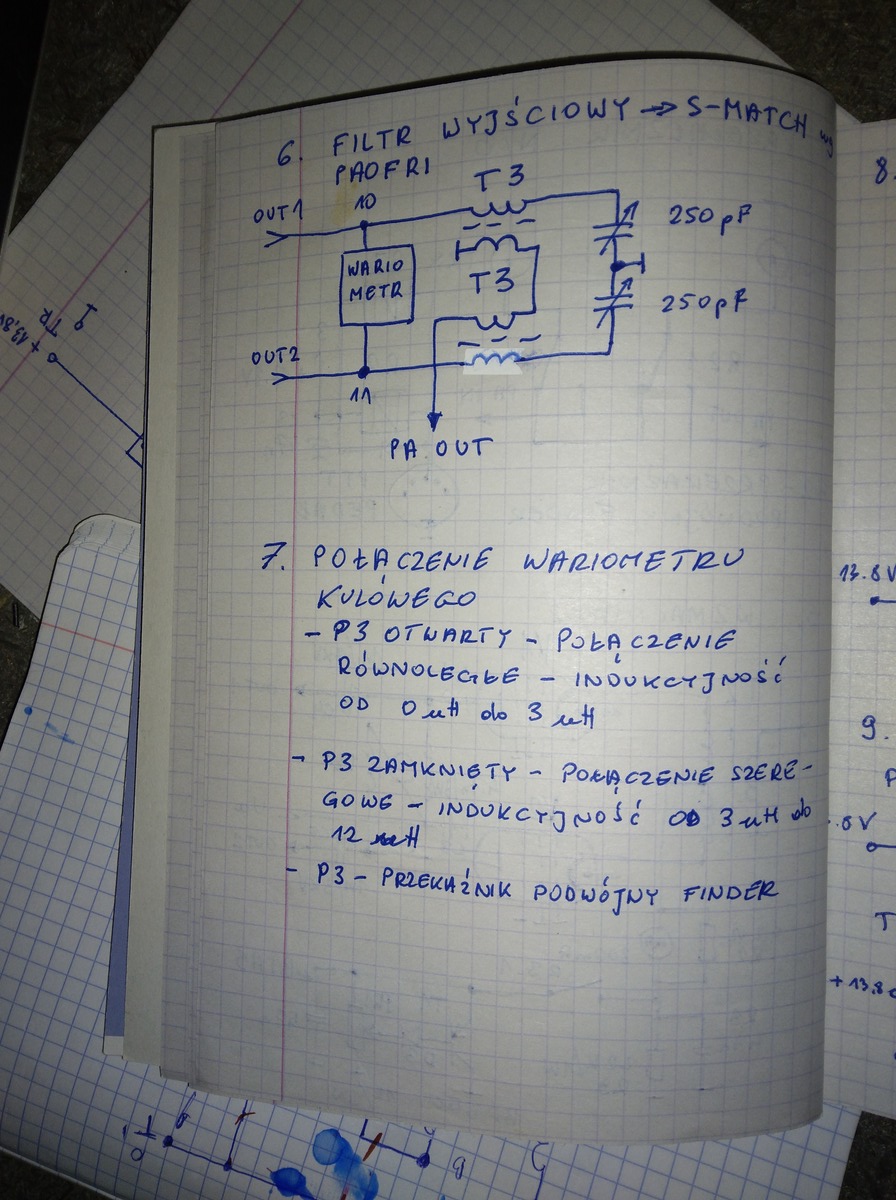 6. FILTR WYJŚCIOWY → S-MATCH wg
PAOFRI
T3
10
OUT1
250 pF
WARIO
METR
T3
250 pF
OUT2
11
PA OUT
7. POŁĄCZENIE WARIOMETRU
KULÓWEGO
- P3 OTWARTY - POŁĄCZENIE
RÓWNOLEGŁE - INDUKCYJNOŚĆ
OD 0 uH do 3 uH
- P3 ZAMKNIĘTY - POŁĄCZENIE SZERE-
GOWE - INDUKCYJNOŚĆ OD 3 uH do
12 uH
- P3 - PRZEKAŹNIK PODWÓJNY FINDER
8.
13.8V
9.
P
.8V
T
+13.8
g TR
+13,8V